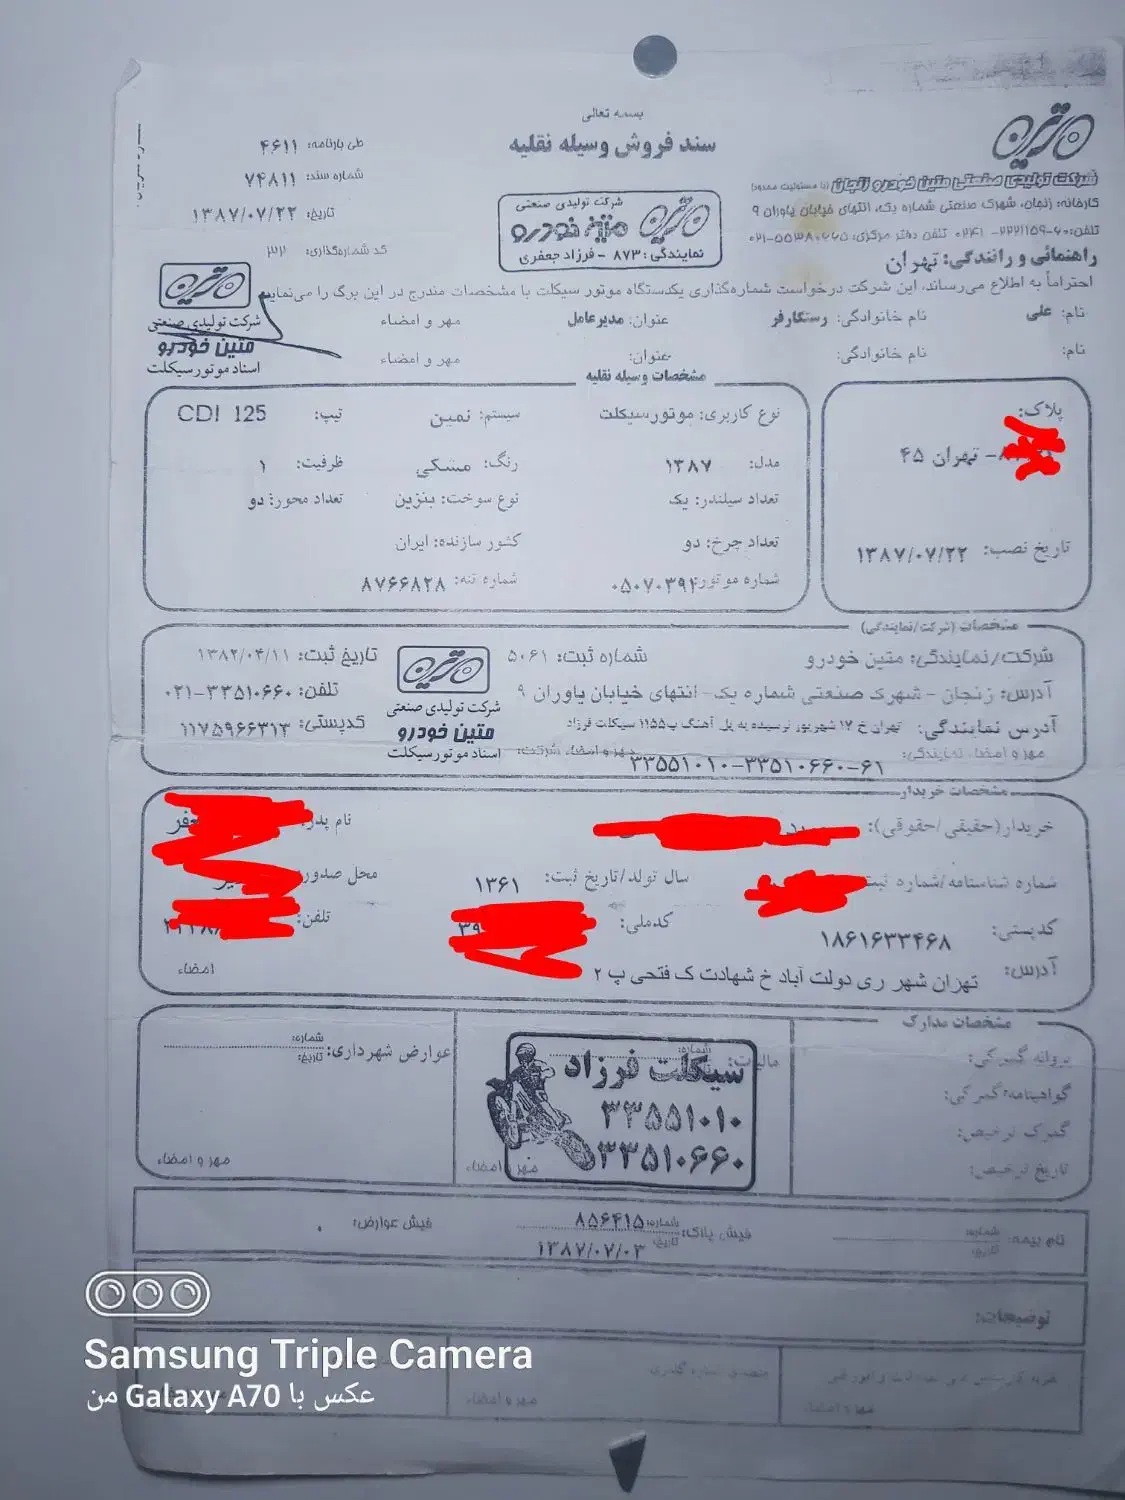 بسمه تعالی
سند فروش وسیله نقلیه
طی بارنامه: ۴۶۱۱
شماره سند: ۷۴۸۱۱
تاریخ: ۱۳۸۷/۰۷/۲۲
کد شماره‌گذاری: ۲۲
متین
شرکت تولیدی صنعتی متین خودرو زنجان (با مسئولیت محدود)
کارخانه: زنجان، شهرک صنعتی شماره یک، انتهای خیابان یاوران ۹
تلفن: ۶۰-۲۲۲۱۱۵۹- ۰۲۴۱ تلفن دفتر مرکزی:
شرکت تولیدی صنعتی
متین خودرو
نمایندگی: ۸۷۳ - فرزاد جعفری
راهنمائی و رانندگی: تهران
احتراماً به اطلاع می‌رساند، این شرکت درخواست شماره‌گذاری یکدستگاه موتور سیکلت با مشخصات مندرج در این برگ را می‌نماید
نام: علی نام خانوادگی: رستگارفر عنوان: مدیرعامل مهر و امضاء
نام: نام خانوادگی: عنوان: مهر و امضاء
متین
شرکت تولیدی صنعتی
متین خودرو
اسناد موتورسیکلت
مشخصات وسیله نقلیه
پلاک:
- تهران ۴۵
تاریخ نصب: ۱۳۸۷/۰۷/۲۲
نوع کاربری: موتورسیکلت سیستم: نمین تیپ: CDI 125
مدل: ۱۳۸۷ رنگ: مشکی ظرفیت: ۱
تعداد سیلندر: یک نوع سوخت: بنزین تعداد محور: دو
تعداد چرخ: دو کشور سازنده: ایران
شماره موتور: ۰۵۰۷۰۳۹۲ شماره تنه: ۸۷۶۶۸۲۸
مشخصات (شرکت/نمایندگی)
شرکت/نمایندگی: متین خودرو شماره ثبت: ۵۰۶۱ تاریخ ثبت: ۱۳۸۲/۰۴/۱۱
آدرس: زنجان - شهرک صنعتی شماره یک- انتهای خیابان یاوران ۹ تلفن: ۰۲۱-۳۳۵۱۰۶۶۰
آدرس نمایندگی: تهران خ ۱۷ شهریور نرسیده به پل آهنگ پ۱۱۵۵ سیکلت فرزاد کدپستی: ۱۱۷۵۹۶۶۳۱۳
مهر و امضاء نمایندگی: ۳۳۵۵۱۰۱۰-۳۳۵۱۰۶۶۰-۶۱ مهر و امضاء شرکت:
متین
شرکت تولیدی صنعتی
متین خودرو
اسناد موتورسیکلت
مشخصات خریدار
خریدار(حقیقی/حقوقی): نام پدر:
شماره شناسنامه/شماره ثبت سال تولد/تاریخ ثبت: ۱۳۶۱ محل صدور:
کدپستی: ۱۸۶۱۶۳۳۴۶۸ کدملی: ۳۹ تلفن:
آدرس: تهران شهر ری دولت آباد خ شهادت ک فتحی پ ۲ امضاء
مشخصات مدارک
پروانه گمرکی:
گواهینامه گمرکی:
گمرک ترخیص:
تاریخ ترخیص:
مالیات: شماره:
مهر و امضاء
سیکلت فرزاد
۳۳۵۵۱۰۱۰
۳۳۵۱۰۶۶۰
عوارض شهرداری: شماره:
تاریخ:
مهر و امضاء
نام بیمه: شماره:
تاریخ:
فیش پلاک: شماره: ۸۵۶۴۱۵
تاریخ: ۱۳۸۷/۰۷/۰۳
فیش عوارض: ۰
توضیحات:
مهر و امضاء
مهر و امضاء
Samsung Triple Camera
عکس با Galaxy A70 من